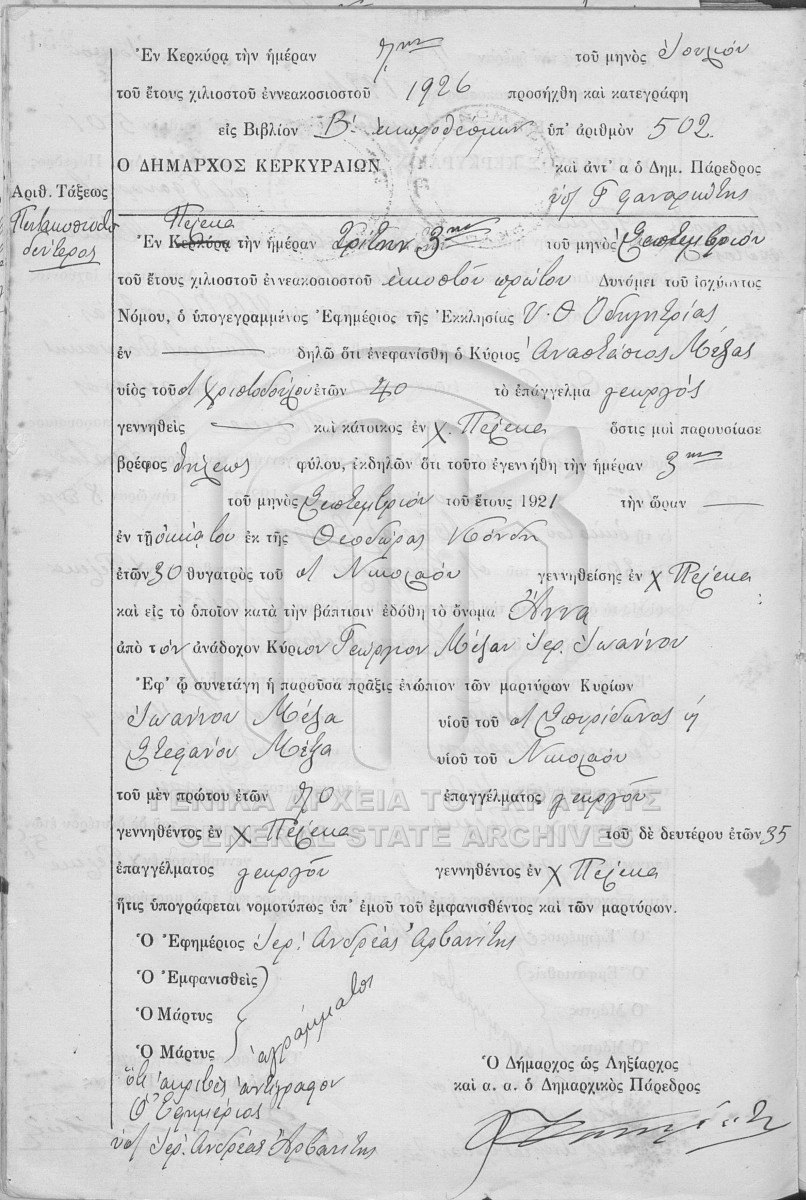 Ἐν Κερκύρᾳ τὴν ἡμέραν 7ην τοῦ μηνὸς Ἰουλίου
τοῦ ἔτους χιλιοστοῦ ἐννεακοσιοστοῦ 1926 προσήχθη καὶ κατεγράφη
εἰς Βιβλίον Β' ἐκπροθέσμων ὑπ' ἀριθμὸν 502.
Ο ΔΗΜΑΡΧΟΣ ΚΕΡΚΥΡΑΙΩΝ καὶ ἀντ' α ὁ Δημ. Πάρεδρος
Ἀριθ. Τάξεως
Πεντακοσιοστὸ
δεύτερος
Πέλεκα
Ἐν Κερκύρᾳ τὴν ἡμέραν Τρίτην 3ην τοῦ μηνὸς Σεπτεμβρίου
τοῦ ἔτους χιλιοστοῦ ἐννεακοσιοστοῦ εἰκοστοῦ πρώτου Δυνάμει τοῦ ἰσχύοντος
Νόμου, ὁ ὑπογεγραμμένος Ἐφημέριος τῆς Ἐκκλησίας Υ. Θ Ὁδηγητρίας
ἐν δηλῶ ὅτι ἐνεφανίσθη ὁ Κύριος Ἀναστάσιος Μέξας
υἱὸς τοῦ Χριστοδούλου ἐτῶν 40 τὸ ἐπάγγελμα γεωργός
γεννηθεὶς καὶ κάτοικος ἐν χ. Πέλεκα ὅστις μοὶ παρουσίασε
βρέφος θήλεως φύλου, ἐκδηλῶν ὅτι τοῦτο ἐγεννήθη τὴν ἡμέραν 3ην
τοῦ μηνὸς Σεπτεμβρίου τοῦ ἔτους 1921 τὴν ὥραν
ἐν τῇ οἰκίᾳ του ἐκ τῆς Θεοδώρας
ἐτῶν 30 θυγατρὸς τοῦ Νικολάου γεννηθείσης ἐν χ Πέλεκα
καὶ εἰς τὸ ὁποῖον κατὰ τὴν βάπτισιν ἐδόθη τὸ ὄνομα Ἄννα
ἀπὸ τὸν ἀνάδοχον Κύριον Γεώργιον Μέξαν Ἱερ. Ἰωάννου
Ἐφ' ᾧ συνετάγη ἡ παροῦσα πρᾶξις ἐνώπιον τῶν μαρτύρων Κυρίων
Ἰωάννου Μέξα υἱοῦ τοῦ Σπυρίδωνος ἢ
Στεφάνου Μέξα υἱοῦ τοῦ Νικολάου
τοῦ μὲν πρώτου ἐτῶν 70 ἐπαγγέλματος γεωργοῦ
ΓΕΝΙΚΑ ΑΡΧΕΙΑ ΤΟΥ ΚΡΑΤΟΥΣ
γεννηθέντος ἐν χ Πέλεκα τοῦ δὲ δευτέρου ἐτῶν 35
GENERAL STATE ARCHIVES
ἐπαγγέλματος γεωργοῦ γεννηθέντος ἐν χ Πέλεκα
ἥτις ὑπογράφεται νομοτύπως ὑπ' ἐμοῦ τοῦ ἐμφανισθέντος καὶ τῶν μαρτύρων.
Ὁ Ἐφημέριος Ἱερ. Ἀνδρέας Ἀρβανίτης
Ὁ Ἐμφανισθεὶς
Ὁ Μάρτυς
Ὁ Μάρτυς ἀγράμματοι
Ὁ Δήμαρχος ὡς Ληξίαρχος
ὅτι ἀκριβὲς ἀντίγραφον καὶ α. α. ὁ Δημαρχικὸς Πάρεδρος
Ὁ Ἐφημέριος
Ἱερ. Ἀνδρέας Ἀρβανίτης